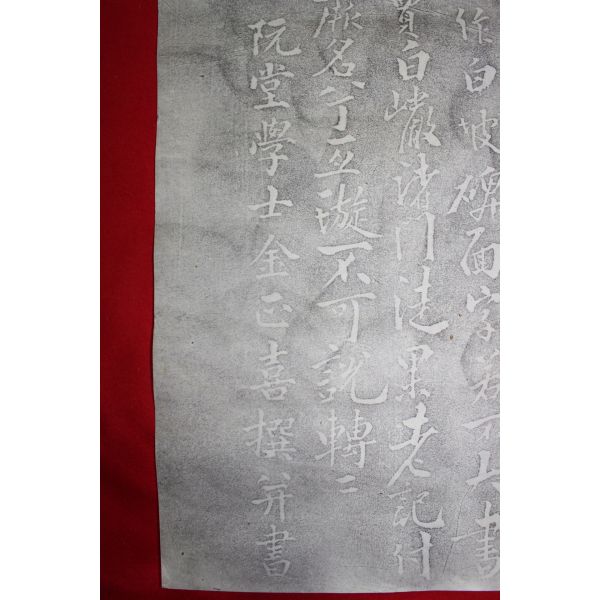 作白坡碑面字若不大書
竇白巖諸門徒果老記付
厥名兮亘璇不可說轉〻
阮堂學士金正喜撰并書